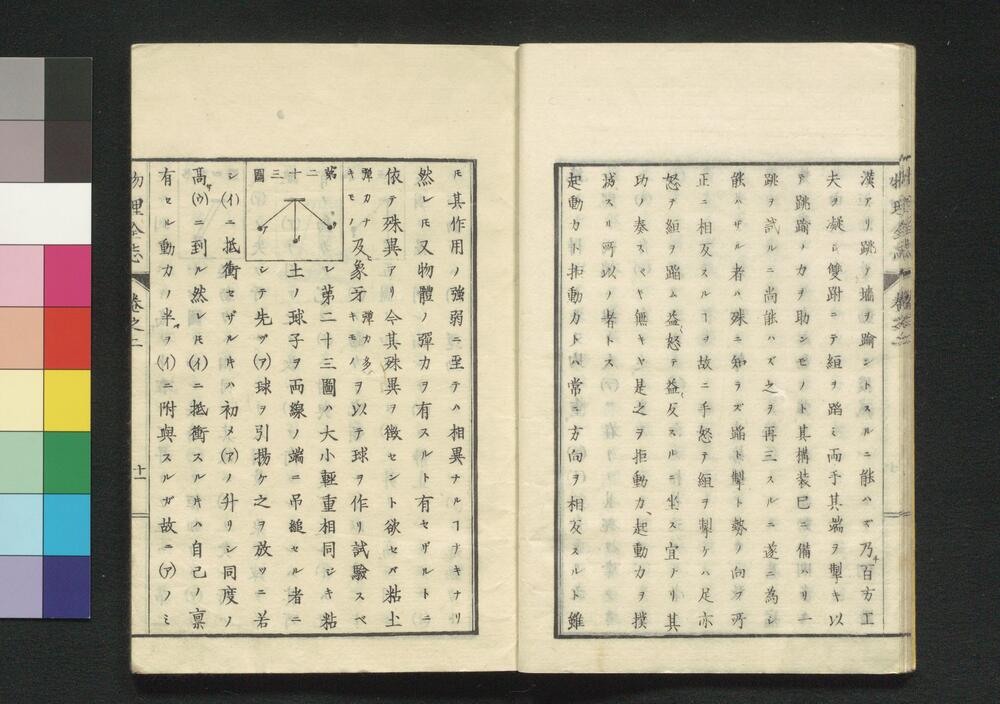 漢アリ跳ノ墻ヲ踰ントスルニ能ハズ乃チ百方工
夫ヲ凝シ雙跗ニテ絙ヲ蹈ミ両手其端ヲ掣キ以
テ跳踰ノカヲ助ンモノト其構装已ニ備ハリ一
跳ヲ試ルニ尚能ハズ之ヲ再三スルニ遂ニ為シ
能ハザル者ハ殊ニ知ラズ蹈ト掣ト勢ノ向フ所
正ニ相反スルヿヲ故ニ手怒テ絙ヲ掣ケハ足亦
怒テ絙ヲ蹈ム益怒テ益反スルニ坐ス宜ナリ其
功ノ奏スベキ無キヤ是之ヲ拒動力、起動力ヲ撲
滅スル所以ノ者トス
起動力ト拒動力トハ常ニ方向ヲ相反スルト雖
物理全志 巻之二
𪜈其作用ノ強弱ニ至テハ相異ナルヿナキナリ
然レ𪜈又物體ノ彈力ヲ有スルト有セザルトニ
依テ殊異アリ今其殊異ヲ徴セント欲セバ粘土
彈力ナキモノ及ヒ象牙彈力多キモノヲ以テ球ヲ作リ試驗スベ
シ第二十三圖ハ大小輕重相同ジキ粘
土ノ球子ヲ両線ノ端ニ吊縋セル者ニ
シテ先ヅ(ア)球ヲ引揚ケ之ヲ放ツニ若
第二十三圖
ア
イ
シ(イ)ニ抵衝セザル𪜈ハ初メ(ア)ノ升リシ同度ノ
高サ(ウ)ニ到ル然レ𪜈(イ)ニ抵衝スル𪜈ハ自己ノ稟
有セル動力ノ半ヲ(イ)ニ附與スルガ故ニ(ア)ノミ
物理全志 巻之二 十一